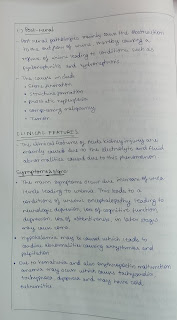 Post-renal
Post renal pathologic mainly cause the obstruction
in the out flow of urine thereby causing a
reflux of urine leading to conditions such as
pyelonephritis and hydronephrosis
The causes include
• Stone formation
• Stricture formation
• prostatic hyperplasia
• compressing malignancy
• Tumor
CLINICAL FEATURES
The clinical features of acute kidney injury are
mainly caused due to the electrolyte and fluid
abnormalities caused due to this phenomenon.
Symptomatology
• The main symptoms occur due increase of urea
levels leading to uremia. This leads to a
conditions of uremic encephalopathy leading to
neurologic depression, loss of cognitive function,
depression, loss of attentiveness, in later stages
may even coma
• Hyperkalemia may be caused which leads to
cardiac abnormalities causing arrhythmia and
palpitation
• Due to hematuria and also erythropoietin malfunction
anaemia may occur which causes tachycardia
tachypnoea dyspnoea and may cause